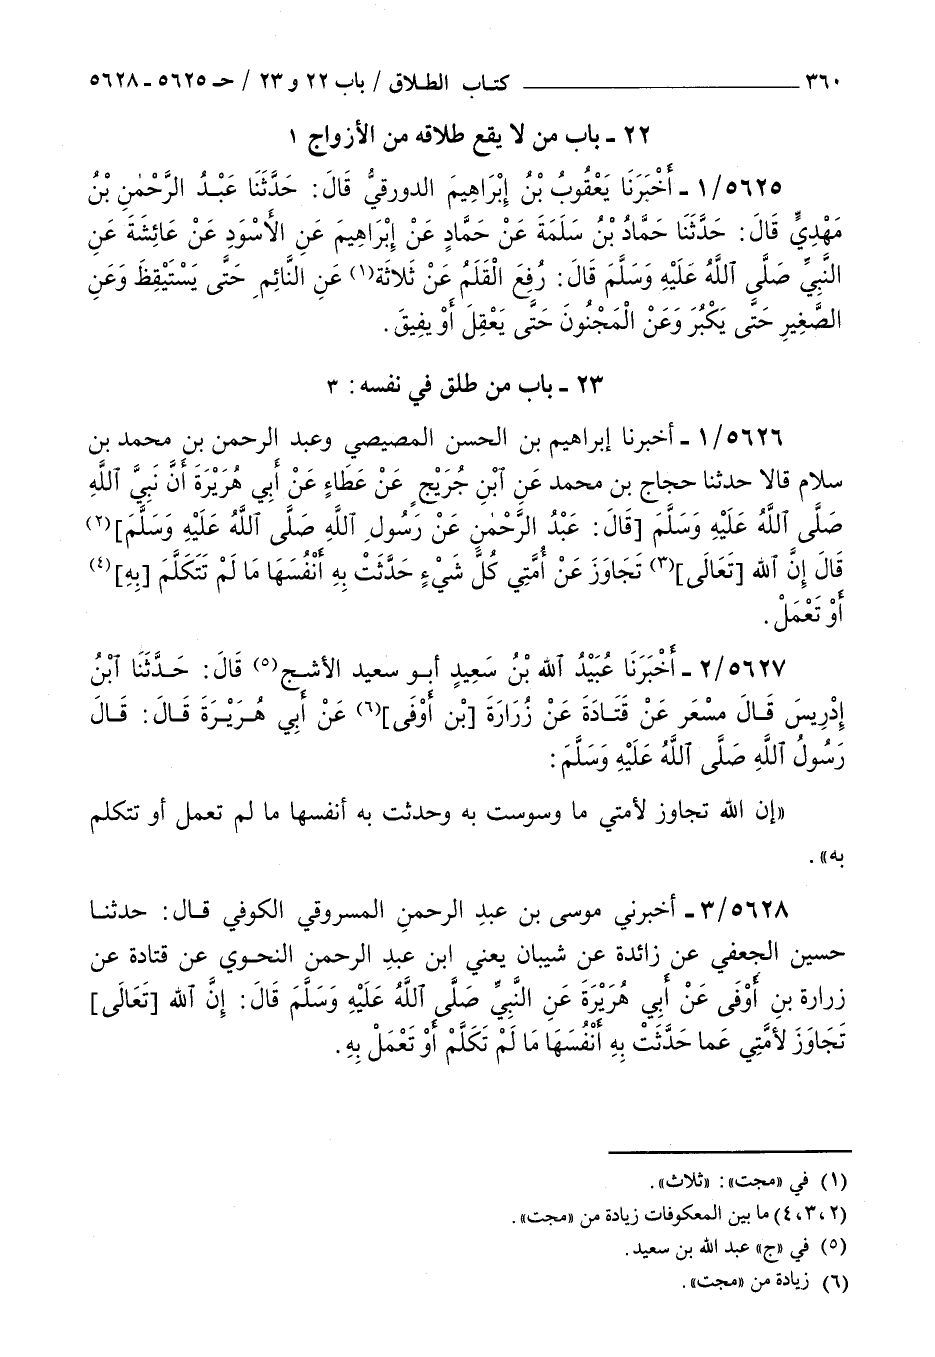 ٣٦٠ كتاب الطلاق / باب ٢٢ و ٢٣ / حـ ٥٦٢٥ - ٥٦٢٨
٢٢ - باب من لا يقع طلاقه من الأزواج ١
١/٥٦٢٥ - أَخْبَرَنَا يَعْقُوبُ بْنُ إِبْرَاهِيمَ الدورقيُّ قَالَ: حَدَّثَنَا عَبْدُ الرَّحْمٰنِ بْنُ
مَهْدِيٍّ قَالَ: حَدَّثَنَا حَمَّادُ بْنُ سَلَمَةَ عَنْ حَمَّادٍ عَنْ إِبْرَاهِيمَ عَنِ الأَسْوَدِ عَنْ عَائِشَةَ عَنِ
النَّبِيِّ صَلَّى ٱللَّهُ عَلَيْهِ وَسَلَّمَ قَالَ: رُفِعَ الْقَلَمُ عَنْ ثَلاثَة(١) عَنِ النَّائِمِ حَتَّى يَسْتَيْقِظَ وَعَنِ
الصَّغِيرِ حَتَّى يَكْبُرَ وَعَنْ الْمَجْنُونَ حَتَّى يَعْقِلَ أَوْ يفيقَ.
٢٣ - باب من طلق في نفسه: ٣
١/٥٦٢٦ - أخبرنا إبراهيم بن الحسن المصيصي وعبد الرحمن بن محمد بن
سلام قالا حدثنا حجاج بن محمد عَنِ ٱبْنِ جُرَيْجٍ عَنْ عَطَاءٍ عَنْ أَبِي هُرَيْرَةَ أَنَّ نَبِيَّ ٱللَّهِ
صَلَّى ٱللَّهُ عَلَيْهِ وَسَلَّمَ [قَالَ: عَبْدُ الرَّحْمٰنِ عَنْ رَسُولِ ٱللَّهِ صَلَّى ٱللَّهُ عَلَيْهِ وَسَلَّمَ](٢)
قَالَ إِنَّ ٱلله [تَعَالَى](٣) تَجَاوَزَ عَنْ أُمَّتِي كُلَّ شَيْءٍ حَدَّثَتْ بِهِ أَنْفُسَهَا مَا لَمْ تَتَكَلَّمَ [بِهِ](٤)
أَوْ تَعْمَلْ.
٢/٥٦٢٧ - أَخْبَرَنَا عُبَيْدُ ٱلله بْنُ سَعِيدٍ أبو سعيد الأشج(٥) قَالَ: حَدَّثَنَا ٱبْنُ
إِدْرِيسَ قَالَ مسْعَر عَنْ قَتَادَةَ عَنْ زُرَارَةَ [بْن أَوْفَى](٦) عَنْ أَبِي هُرَيْرَةَ قَالَ: قَالَ
رَسُولُ ٱللَّهِ صَلَّى ٱللَّهُ عَلَيْهِ وَسَلَّمَ:
«إن الله تجاوز لأمتي ما وسوست به وحدثت به أنفسها ما لم تعمل أو تتكلم
به».
٣/٥٦٢٨ - أخبرني موسى بن عبدِ الرحمنِ المسروقي الكوفي قال: حدثنا
حسين الجعفي عن زائدة عن شيبان يعني ابن عبدِ الرحمن النحوي عن قتادة عن
زرارة بنِ أَوْفَى عَنْ أَبِي هُرَيْرَةَ عَنِ النَّبِيِّ صَلَّى ٱللَّهُ عَلَيْهِ وَسَلَّمَ قَالَ: إِنَّ ٱلله [تَعَالَى]
تَجَاوَزَ لأُمَّتِي عَما حَدَّثَتْ بِهِ أَنْفُسَهَا مَا لَمْ تَكَلَّمْ أَوْ تَعْمَلْ بِهِ.
(١) في «مجت»: «ثلاث».
(٢، ٣، ٤) ما بين المعكوفات زيادة من «مجت».
(٥) في «ج» عبد الله بن سعيد.
(٦) زيادة من «مجت».